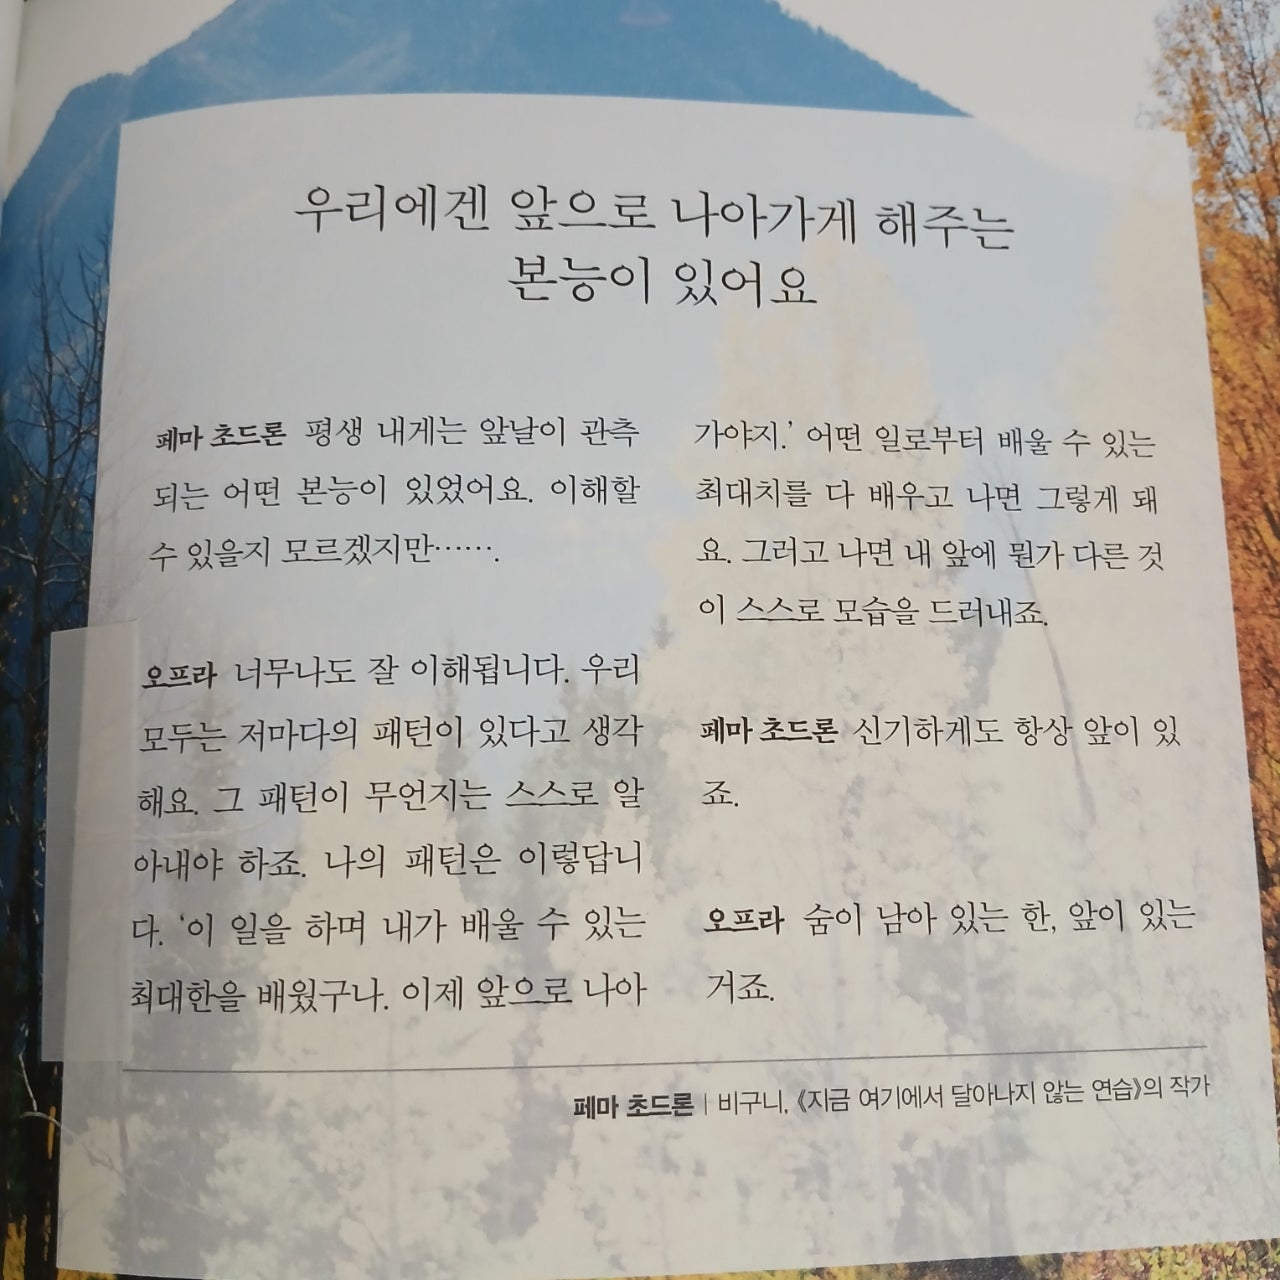 우리에겐 앞으로 나아가게 해주는
본능이 있어요
페마 초드론 평생 내게는 앞날이 관측
되는 어떤 본능이 있었어요. 이해할
수 있을지 모르겠지만…….
오프라 너무나도 잘 이해됩니다. 우리
모두는 저마다의 패턴이 있다고 생각
해요. 그 패턴이 무언지는 스스로 알
아내야 하죠. 나의 패턴은 이렇답니
다. ‘이 일을 하며 내가 배울 수 있는
최대한을 배웠구나. 이제 앞으로 나아
가야지.’ 어떤 일로부터 배울 수 있는
최대치를 다 배우고 나면 그렇게 돼
요. 그러고 나면 내 앞에 뭔가 다른 것
이 스스로 모습을 드러내죠.
페마 초드론 신기하게도 항상 앞이 있
죠.
오프라 숨이 남아 있는 한, 앞이 있는
거죠.
페마 초드론 | 비구니, 《지금 여기에서 달아나지 않는 연습》의 작가